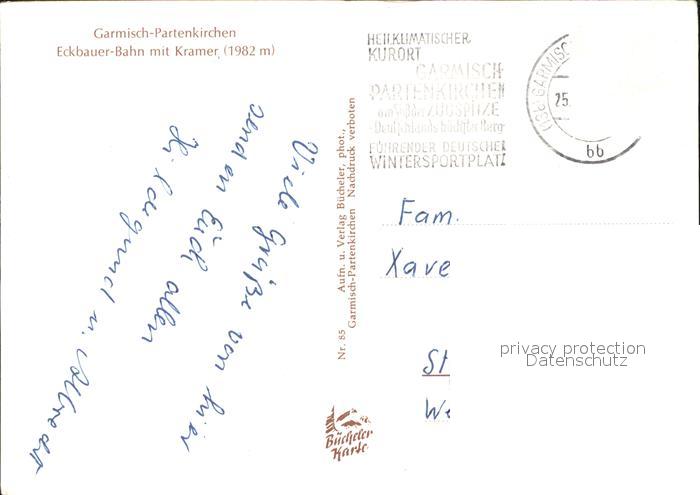 Garmisch-Partenkirchen
Eckbauer-Bahn mit Kramer (1982 m)
Viele Grüße von hier
senden Euch allen
Hildegund u.
HEILKLIMATISCHER
KURORT
GARMISCH-
PARTENKIRCHEN
am Fuß der ZUGSPITZE
Deutschlands höchster Berg
FÜHRENDER DEUTSCHER
WINTERSPORTPLATZ
GARMISC
25.
bb
Nr. 85 Aufn. u. Verlag Bücheler, phot.,
Garmisch-Partenkirchen Nachdruck verboten
Bücheler
Karte
Fam.
Xave
St
We
privacy protection
Datenschutz